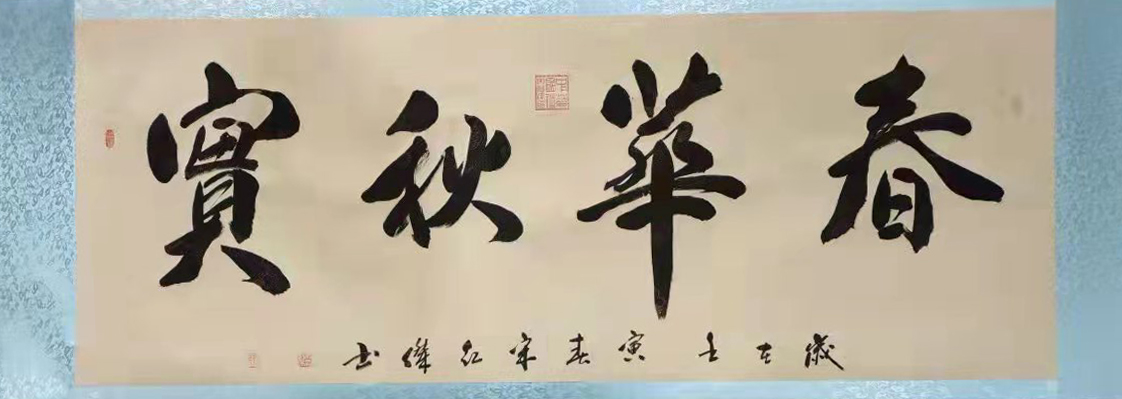 春華秋實
歲在壬寅春宋紅傑書